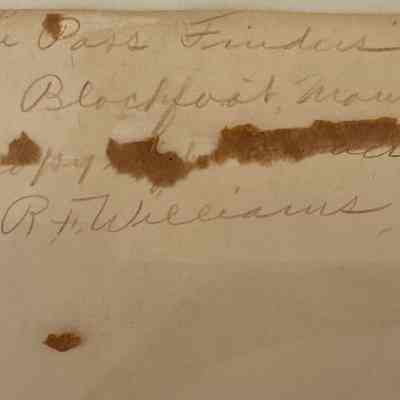 Pass Finders
Blackfoot, Mon
opy
R. F. Williams